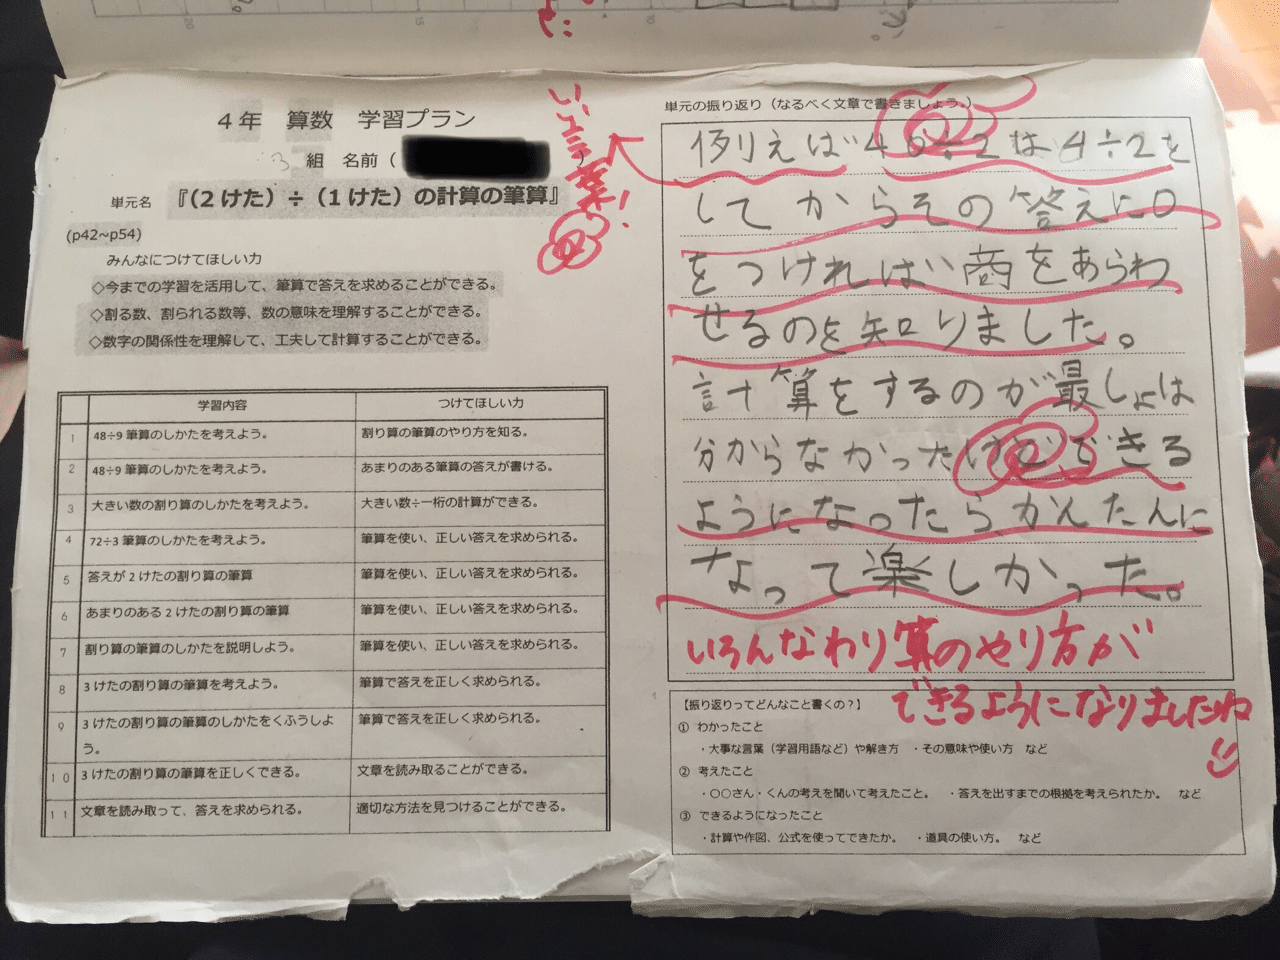 20
15
10
4年 算数 学習プラン
3 組 名前（ ）
単元名 『（2けた）÷（1けた）の計算の筆算』
(p42~p54)
みんなにつけてほしい力
◇今までの学習を活用して、筆算で答えを求めることができる。
◇割る数、割られる数等、数の意味を理解することができる。
◇数字の関係性を理解して、工夫して計算することができる。
学習内容 つけてほしい力
1 48÷9 筆算のしかたを考えよう。 割り算の筆算のやり方を知る。
2 48÷9 筆算のしかたを考えよう。 あまりのある筆算の答えが書ける。
3 大きい数の割り算のしかたを考えよう。 大きい数÷一桁の計算ができる。
4 72÷3 筆算のしかたを考えよう。 筆算を使い、正しい答えを求められる。
5 答えが2けたの割り算の筆算 筆算を使い、正しい答えを求められる。
6 あまりのある2けたの割り算の筆算 筆算を使い、正しい答えを求められる。
7 割り算の筆算のしかたを説明しよう。 筆算を使い、正しい答えを求められる。
8 3けたの割り算の筆算を考えよう。 筆算で答えを正しく求められる。
9 3けたの割り算の筆算のしかたをくふうしよ
う。 筆算で答えを正しく求められる。
10 3けたの割り算の筆算を正しくできる。 文章を読み取ることができる。
11 文章を読み取って、答えを求められる。 適切な方法を見つけることができる。
いい言葉！
単元の振り返り（なるべく文章で書きましょう。）
例りえば40÷2は4÷2を
してからその答えに0
をつければ商をあらわ
せるのを知りました。
計算をするのが最しょは
分からなかったけどできる
ようになったらかんたんに
なって楽しかった。
いろんなわり算のやり方が
できるようになりましたね
【振り返りってどんなこと書くの？】
① わかったこと
・大事な言葉（学習用語など）や解き方 ・その意味や使い方 など
② 考えたこと
・〇〇さん・くんの考えを聞いて考えたこと。 ・答えを出すまでの根拠を考えられたか。 など
③ できるようになったこと
・計算や作図、公式を使ってできたか。 ・道具の使い方。 など